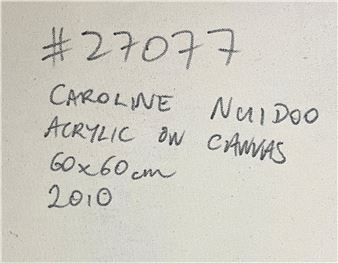 #27077
CAROLINE NUIDOO
ACRYLIC ON CANVAS
60x60cm
2010